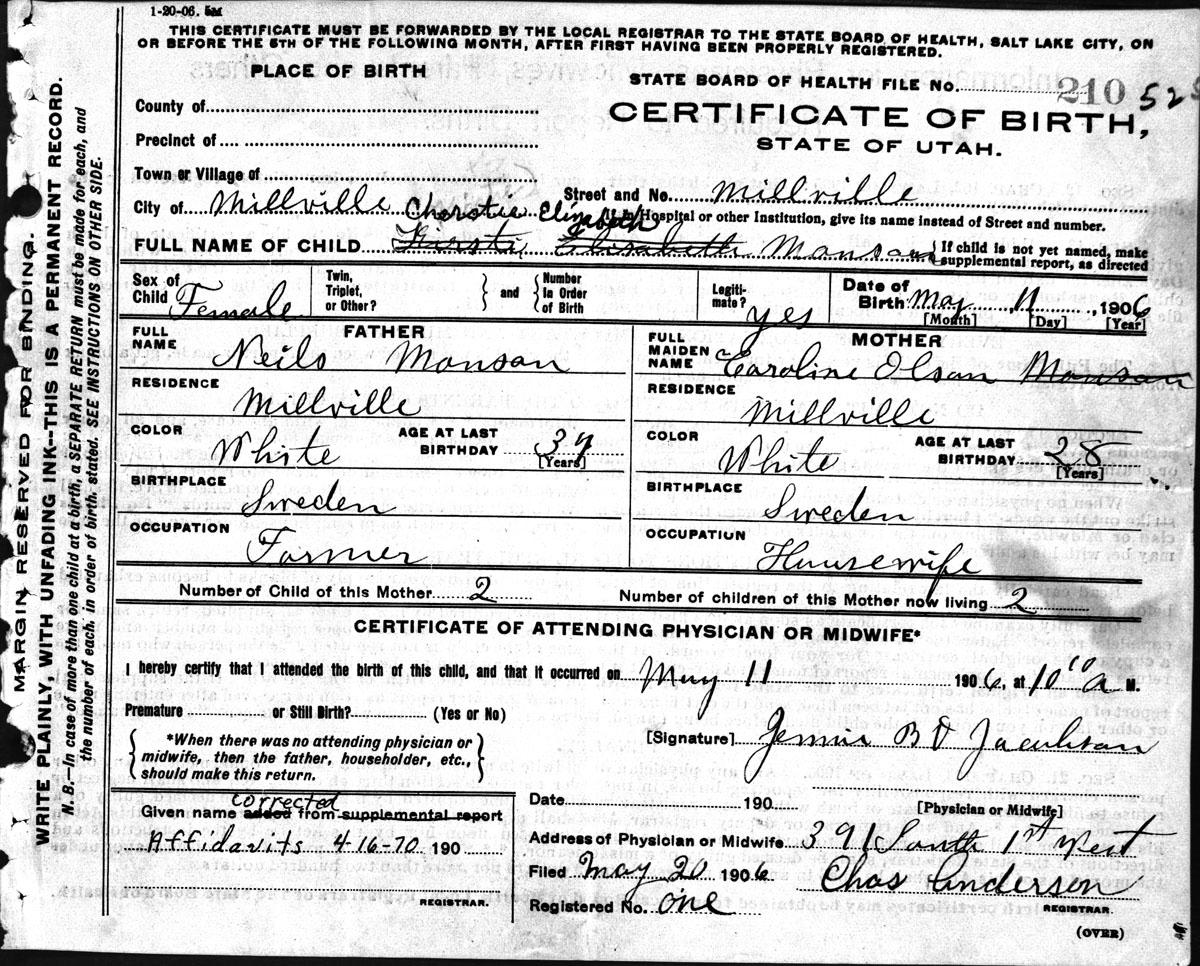 1-20-06. 5M
THIS CERTIFICATE MUST BE FORWARDED BY THE LOCAL REGISTRAR TO THE STATE BOARD OF HEALTH, SALT LAKE CITY, ON
OR BEFORE THE 5TH OF THE FOLLOWING MONTH, AFTER FIRST HAVING BEEN PROPERLY REGISTERED.
PLACE OF BIRTH
STATE BOARD OF HEALTH FILE No. 210 525
CERTIFICATE OF BIRTH,
STATE OF UTAH.
County of
Precinct of
Town or Village of
City of Millville Street and No. Millville
(If in Hospital or other Institution, give its name instead of Street and number.
Christie Elizabeth
FULL NAME OF CHILD Kirste Elisabeth Monson {If child is not yet named, make
supplemental report, as directed
Sex of Child Female Twin, Triplet, or Other? and Number in Order of Birth Legitimate? yes Date of Birth May 11, 1906
[Month] [Day] [Year]
FATHER
FULL NAME Neils Monson
RESIDENCE Millville
COLOR White AGE AT LAST BIRTHDAY 37
[Years]
BIRTHPLACE Sweden
OCCUPATION Farmer
MOTHER
FULL MAIDEN NAME Caroline Olson Monson
RESIDENCE Millville
COLOR White AGE AT LAST BIRTHDAY 28
[Years]
BIRTHPLACE Sweden
OCCUPATION Housewife
Number of Child of this Mother 2 Number of children of this Mother now living 2
CERTIFICATE OF ATTENDING PHYSICIAN OR MIDWIFE*
I hereby certify that I attended the birth of this child, and that it occurred on May 11 1906, at 10 a M.
Premature or Still Birth? (Yes or No)
*When there was no attending physician or
midwife, then the father, householder, etc.,
should make this return.
[Signature] Jennie B
[Physician or Midwife]
corrected
Given name added from supplemental report
Affidavits 4-16-70 190
REGISTRAR.
Date 190
Address of Physician or Midwife 391 South 1st West
Filed May 20 1906 Chas Anderson
Registered No. one REGISTRAR.
(OVER)
MARGIN RESERVED FOR BINDING.
WRITE PLAINLY, WITH UNFADING INK--THIS IS A PERMANENT RECORD.
N. B. In case of more than one child at a birth, a SEPARATE RETURN must be made for each, and
the number of each, in order of birth, stated. SEE INSTRUCTIONS ON OTHER SIDE.